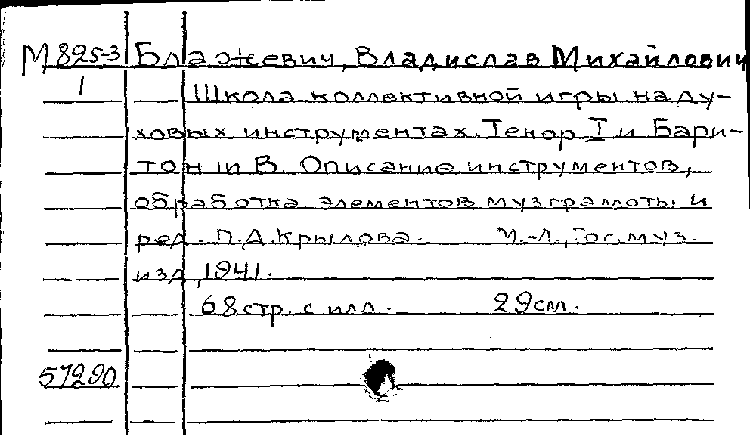 М825-3 Блажевич, Владислав Михайлович
1 Школа коллективной игры на ду-
ховых инструментах. Тенор I и Бари-
тон in B. Описание инструментов,
обработка элементов музграмоты и
ред. П.Д.Крылова. М.-Л., Гос. муз.
изд, 1941.
68 стр. с илл. 29 см.
57290